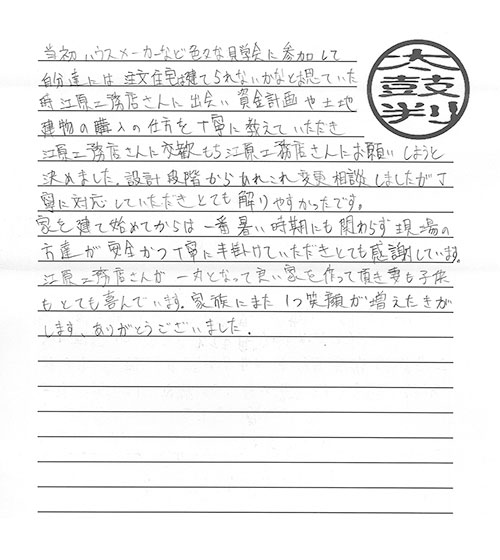 当初ハウスメーカーなど色々な見学会に参加して
自分達には注文住宅は建てられないかなと思っていた
時江原工務店さんに出会い資金計画や土地
建物の購入の仕方を丁寧に教えていただき
江原工務店さんに交歓もち江原工務店さんにお願いしようと
決めました。設計段階からあれこれ変更相談しましたが丁
寧に対応していただきとても解りやすかったです。
家を建て始めてからは一番暑い時期にも関わらず現場の
方達が安全かつ丁寧に手掛けていただきとても感謝しています。
江原工務店さんが一丸となって良い家を作って頂き妻も子供
もとても喜んでいます。家族にまた1つ笑顔が増えたきが
します、ありがとうございました。
太鼓判